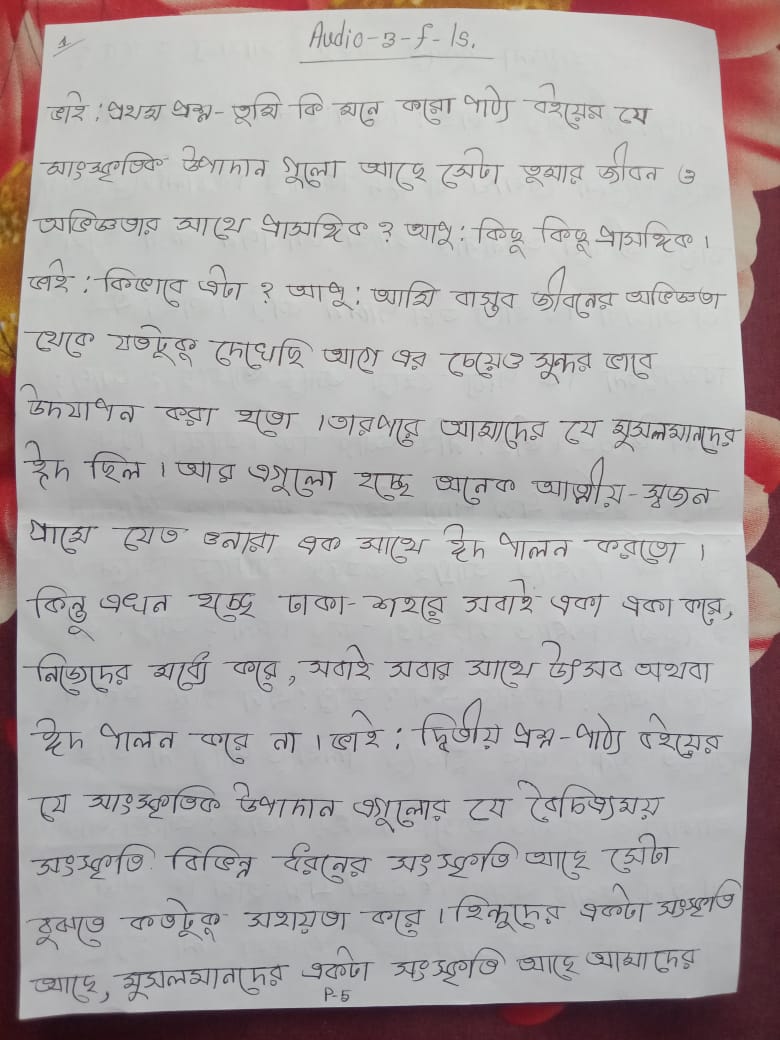 1
Audio-3-f-1s.
ভাই : প্রথম প্রশ্ন- তুমি কি মনে করো পাঠ্য বইয়ের যে
সাংস্কৃতিক উপাদান গুলো আছে সেটা তুমার জীবন ও
অভিজ্ঞতার সাথে প্রাসঙ্গিক ? আপু : কিছু কিছু প্রাসঙ্গিক ।
ভাই : কিভাবে এটা ? আপু : আমি বাস্তব জীবনের অভিজ্ঞতা
থেকে যতটুকু দেখেছি আগে এর চেয়েও সুন্দর ভাবে
উদযাপন করা হতো । তারপরে আমাদের যে মুসলমানদের
ঈদ ছিল । আর এগুলো হচ্ছে অনেক আত্মীয়-স্বজন
গ্রামে যেত ওনারা এক সাথে ঈদ পালন করতো ।
কিন্তু এখন হচ্ছে ঢাকা-শহরে সবাই একা একা করে,
নিজেদের মধ্যে করে, সবাই সবার সাথে উৎসব অথবা
ঈদ পালন করে না । ভাই : দ্বিতীয় প্রশ্ন-পাঠ্য বইয়ের
যে সাংস্কৃতিক উপাদান এগুলোর যে বৈচিত্র্যময়
সংস্কৃতি বিভিন্ন ধরনের সংস্কৃতি আছে সেটা
বুঝতে কতটুকু সহায়তা করে । হিন্দুদের একটা সংস্কৃতি
আছে, মুসলমানদের একটা সংস্কৃতি আছে আমাদের
P-5